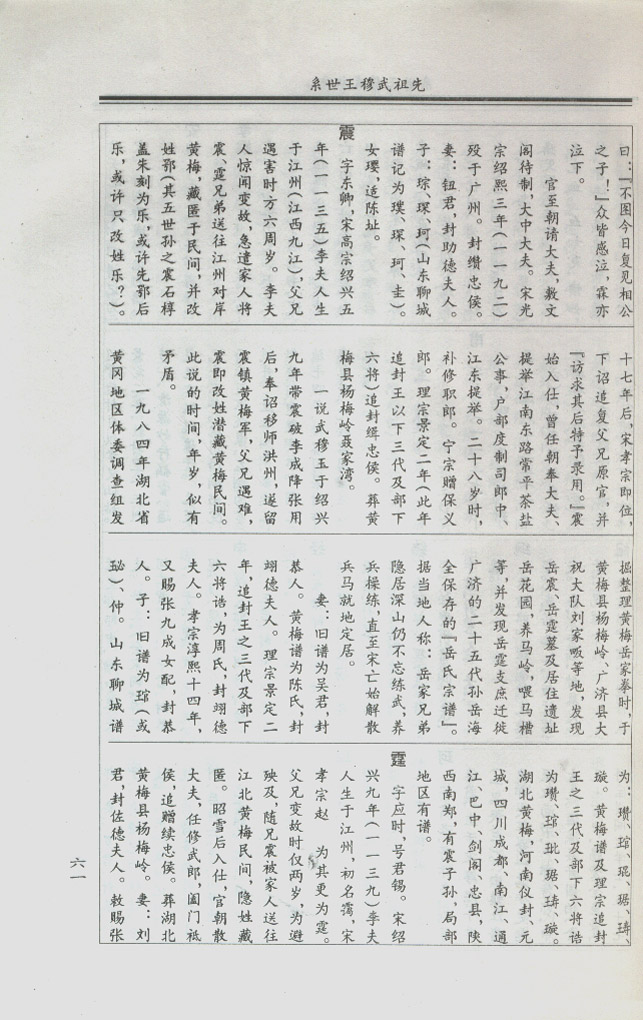 先祖武穆王世系
曰：『不图今日复见相公
之子！』众皆感泣，霖亦
泣下。
官至朝请大夫，敷文
阁待制，大中大夫。宋光
宗绍熙三年(一一九二)
殁于广州。封缵忠侯。
妻：钮君，封助德夫人。
子：琮、琛、珂(山东聊城
谱记为璞、琛、珂、圭)。
女璎，适陈址。
震
字东卿，宋高宗绍兴五
年(一一三五)李夫人生
于江州(江西九江)，父兄
遇害时方六周岁。李夫
人惊闻变故，急遣家人将
震、霆兄弟送往江州对岸
黄梅，藏匿于民间，并改
姓鄂(其五世孙之震石椁
盖朱刻为乐，或许先鄂后
乐，或许只改姓乐？)。
十七年后，宋孝宗即位，
下诏追复父兄原官，并
『访求其后特予录用。』震
始入仕，曾任朝奉大夫、
提举江南东路常平茶盐
公事，户部度制司郎中、
江东提举。二十八岁时，
补修职郎。宁宗赠保义
郎。理宗景定二年(此年
追封王以下三代及部下
六将)追封缉忠侯。葬黄
梅县杨梅岭聂家湾。
一说武穆王于绍兴
九年带震破李成降张用
后，奉诏移师洪州，遂留
震镇黄梅军，父兄遇难，
震即改姓潜藏黄梅民间。
此说的时间，年岁，似有
矛盾。
一九八四年湖北省
黄冈地区体委调查组发
掘整理黄梅岳家拳时，于
黄梅县杨梅岭、广济县大
祝大队刘家畈等地，发现
岳震、岳霆墓及居住遗址
岳花园，养马岭，喂马槽
等，并发现岳霆支庶迁徙
广济的二十五代孙岳海
全保存的『岳氏宗谱』。
据当地人称：岳家兄弟
隐居深山仍不忘练武，养
兵操练，直至宋亡始解散
兵马就地定居。
妻：旧谱为吴君，封
慕人。黄梅谱为陈氏，封
翊德夫人。理宗景定二
年，追封王之三代及部下
六将诰，为周氏，封翊德
夫人。孝宗淳熙十四年，
又赐张九成女配，封恭
人。子：旧谱为琯(或
珌)、仲。山东聊城谱
为：瓒、琯、琨、琚、琦、
璇。黄梅谱及理宗追封
王之三代及部下六将诰
为瓒、琯、玭、琚、琦、璇。
湖北黄梅，河南仪封、元
城，四川成都、南江、通
江、巴中、剑阁、忠县，陕
西南郑，有震子孙，局部
地区有谱。
霆
字应时，号君锡。宋绍
兴九年(一一三九)李夫
人生于江州，初名霭，宋
孝宗赵 为其更为霆。
父兄变故时仅两岁，为避
殃及，随兄震被家人送往
江北黄梅民间，隐姓藏
匿。昭雪后入仕，官朝散
大夫，任修武郎，阁门祗
侯，追赠续忠侯。葬湖北
黄梅县杨梅岭。妻：刘
君，封佐德夫人。敕赐张
六一